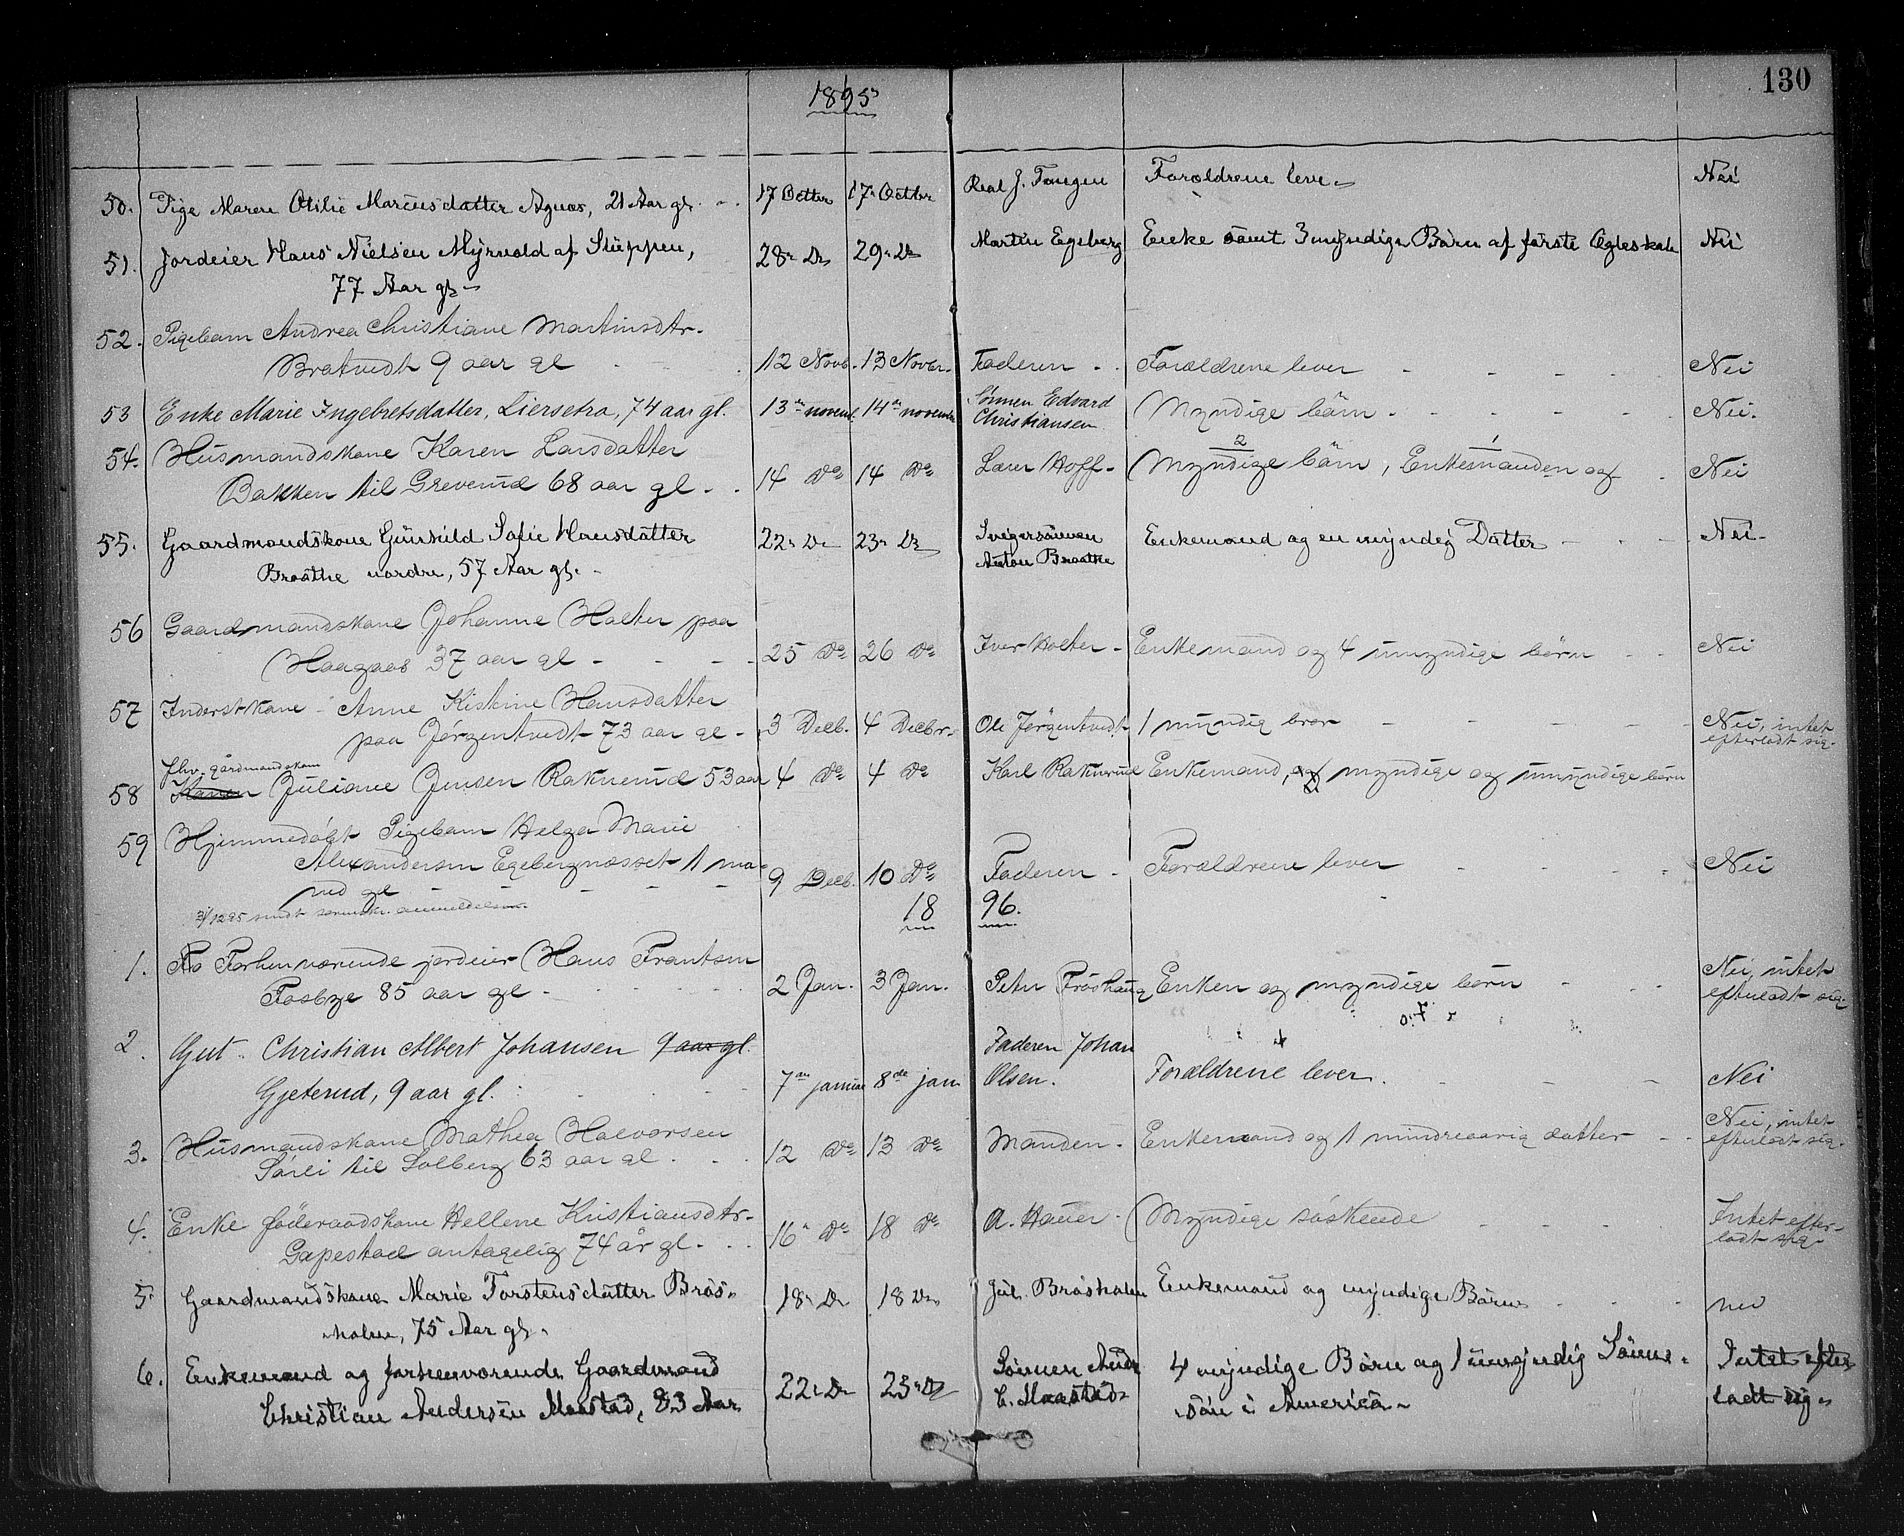 1895
130
50. Pige Maren Otilie Mariusdatter Agnæs, 21 Aar gl. 17 Octbr 17 Octbr Real J. Tangen Forældrene leve Nei
51. Jordeier Hans Nielsen Myrvold af Stuppen, 28 Do 29 Do Martin Egeberg Enke samt 3 myndige Børn af første Ægteskab Nei
77 Aar gl.
52. Pigebarn Andrea Christiane Martinsdtr.
Bratvedt 9 aar gl 12 Novb. 13 Novbr. Faderen Forældrene lever Nei
53 Enke Marie Ingebretsdatter, Liersetra, 74 aar gl. 13de novemb. 14de novembr Sønnen Edvard Christiansen Myndige börn Nei.
54. Husmandskone Karen Larsdatter
Bakken til Greverud 68 aar gl. 14 Do 14 Do Lærer Hoff 2 Myndige börn, 1 Enkemanden og Nei
55. Gaardmandskone Gunhild Sofie Hansdatter 22 Do 23 Do Svigersønnen Enkemand og en myndig Datter Nei.
Braathe nordre, 57 Aar gl. Anton Braathe
56 Gaardmandskone Johanne Holter paa
Haagaas 37 aar gl 25 Do 26 Do Iver Holter Enkemand og 4 umyndige börn Nei
57 Inderstkone Anne Kistine Hansdatter
paa Jørgentvedt 73 aar gl 3 Decb. 4 Decbr. Ole Jørgentvedt 1 myndig bror Nei, intet efterladt sig.
fhv. gårdmandskone
58 Karen Juliane Jensen Raknerud 53 aar 4 Do 4 Do Karl Raknerud Enkemand, og myndige og umyndige börn
59 Hjemmedøbt Pigebarn Helga Marie
Alexandersen Egebergnæsset 1 maa-
ned gl 9 Decb. 10 Do Faderen Forældrene lever Nei
31/12 95 sendt anmeldelsen.
1896.
1. Fo Forhenværende jordeier Hans Frantsen
Fosbye 85 aar gl 2 Jan. 3 Jan. Peter Fröshaug Enken og myndige börn Nei, intet efterladt sig.
2. Gut. Christian Albert Johansen 9 aar gl. Faderen Johan
Gjeterud, 9 aar gl. 7de januar 8de jan Olsen. Forældrene lever. Nei
3. Husmandskone Mathea Halvorsen
Sørli til Solberg 63 aar gl. 12 Do 13 Do Manden Enkemand og 1 mindreaarig datter Nei, intet efterladt sig.
4. Enke föderaadskone Hellene Kristiansdtr.
Gapestad antagelig 74 år gl. 16 Do 18 Do A. Hauer Myndige söskende Intet efter- ladt sig.
5 Gaardmandskone Marie Torstensdatter Brøs- 18 Do 18 Do Jul. Brøsholm Enkemand og myndige Børn nei
holm, 75 Aar gl.
6. Enkemand og forhenværende Gaardmand Sønnen Andr. 4 myndige Børn og 1 umyndig Sønne- Intet efter
Christian Andersen Maastad, 83 Aar 22 Do 23 Do C. Maastad søn i America ladt sig.